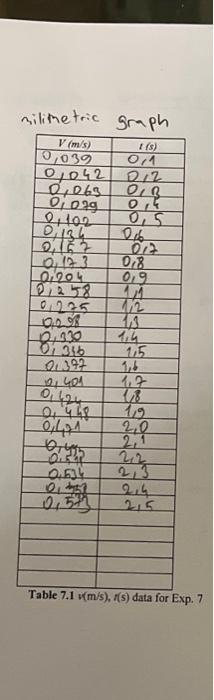 milimetric graph
V (m/s) t (s)
0,039 0,1
0,042 0,2
0,063 0,3
0,079 0,4
0,102 0,5
0,134 0,6
0,157 0,7
0,173 0,8
0,204 0,9
0,258 1,1
0,275 1,2
0,298 1,3
0,330 1,4
1,5
0,377 1,6
0,401 1,7
0,424 1,8
0,448 1,9
0,471 2,0
2,1
2,2
0,534 2,3
2,4
2,5
Table 7.1 v(m/s), t(s) data for Exp. 7